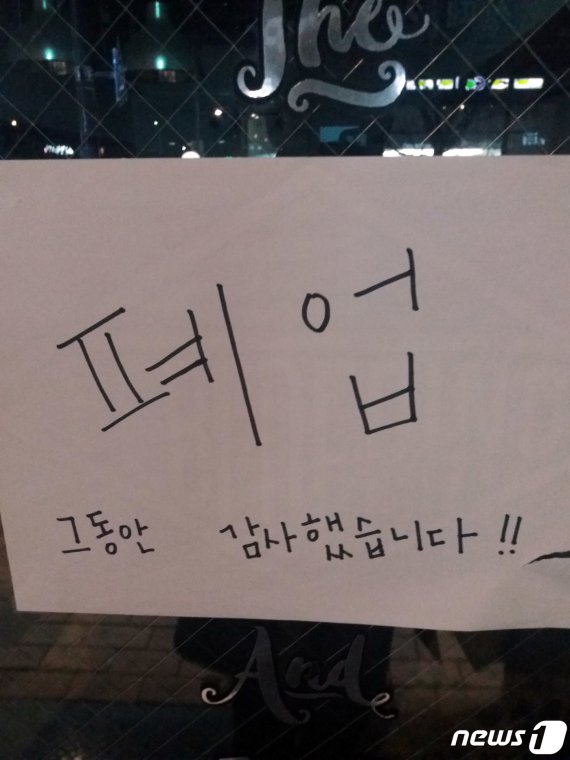 The
폐업
그동안 감사했습니다!!
And
news1